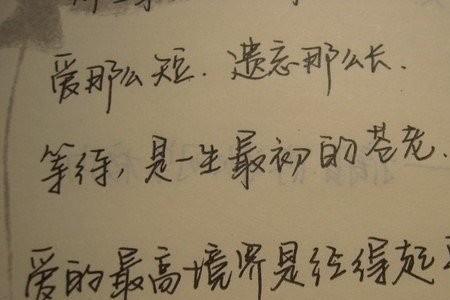 爱那么短.遗忘那么长.
等待,是一生最初的苍老.
爱的最高境界是经得起